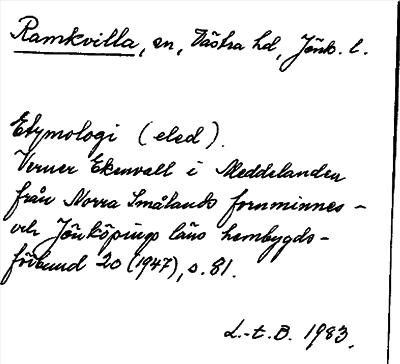 Ramkvilla, sn, Västra hd, Jönk. l.
Etymologi (eled).
Verner Ekenvall i Meddelanden
från Norra Smålands fornminnes-
och Jönköpings läns hembygds-
förbund 20 (1947), s. 81.
L.-t. B. 1983.